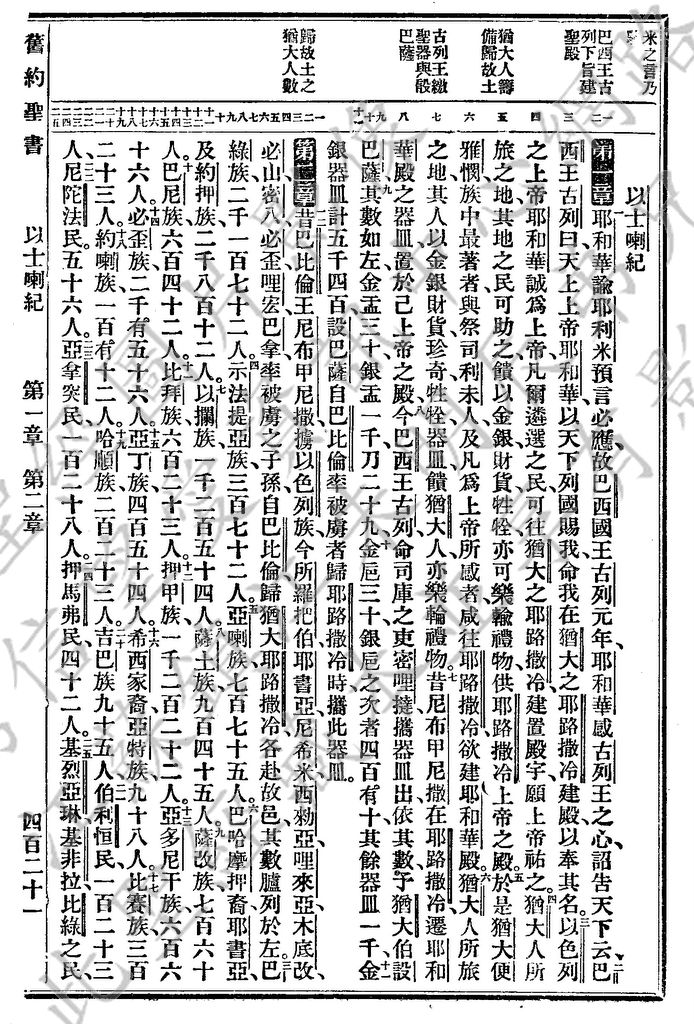 以士喇紀
第一章耶和華諭耶利米預言必應故巴西國王古列元年耶和華感古列王之心詔告天下云巴
西王古列曰天上上帝耶和華以天下列國賜我命我在猶大之耶路撒冷建殿以奉其名以色列
之上帝耶和華誠爲上帝凡爾遴選之民可往猶大之耶路撒冷建置殿宇願上帝祐之猶大人所
旅之地其地之民可助之饋以金銀財貨牲牷亦可樂輸禮物供耶路撒冷上帝之殿於是猶大便
雅憫族中最著者與祭司利未人及凡爲上帝所感者咸往耶路撒冷欲建耶和華殿猶大人所旅
之地其人以金銀財貨珍奇牲牷器皿饋猶大人亦樂輸禮物昔尼布甲尼撒在耶路撒冷遷耶和
華殿之器皿置於己上帝之殿今巴西王古列命司庫之吏密哩撻攜器皿出依其數予猶大伯設
巴薩其數如左金盂三十銀盂一千刀二十九金巵三十銀巵之次者四百有十其餘器皿一千金
銀器皿計五千四百設巴薩自巴比倫率被虜者歸耶路撒冷時攜此器皿
第二章昔巴比倫王尼布甲尼撒擄以色列族今所羅把伯耶書亞尼希米西勑亞哩來亞木底改
必山密八必歪哩宏巴拿率被虜之子孫自巴比倫歸猶大耶路撒冷各赴故邑其數臚列於左巴
綠族二千一百七十二人示法提亞族三百七十二人亞喇族七百七十五人巴哈摩押裔耶書亞
及約押族二千八百十二人以攔族一千二百五十四人薩土族九百四十五人薩改族七百六十
人巴尼族六百四十二人比拜族六百二十三人押甲族一千二百二十二人亞多尼干族六百六
十六人必歪族二千有五十六人亞丁族四百五十四人希西家裔亞特族九十八人比賽族三百
二十三人約喇族一百有十二人哈順族二百二十三人吉巴族九十五人伯利恒民一百二十三
人尼陀法民五十六人亞拿突民一百二十八人押馬弗民四十二人基烈亞琳基非拉比綠之民
米之言乃
巴西王古
列下旨建
聖殿
猶大人籌
備歸故土
古列王繳
聖器與設
巴薩
歸故土之
猶大人數
舊約聖書
以士喇紀
第一章
第二章
四百二十一